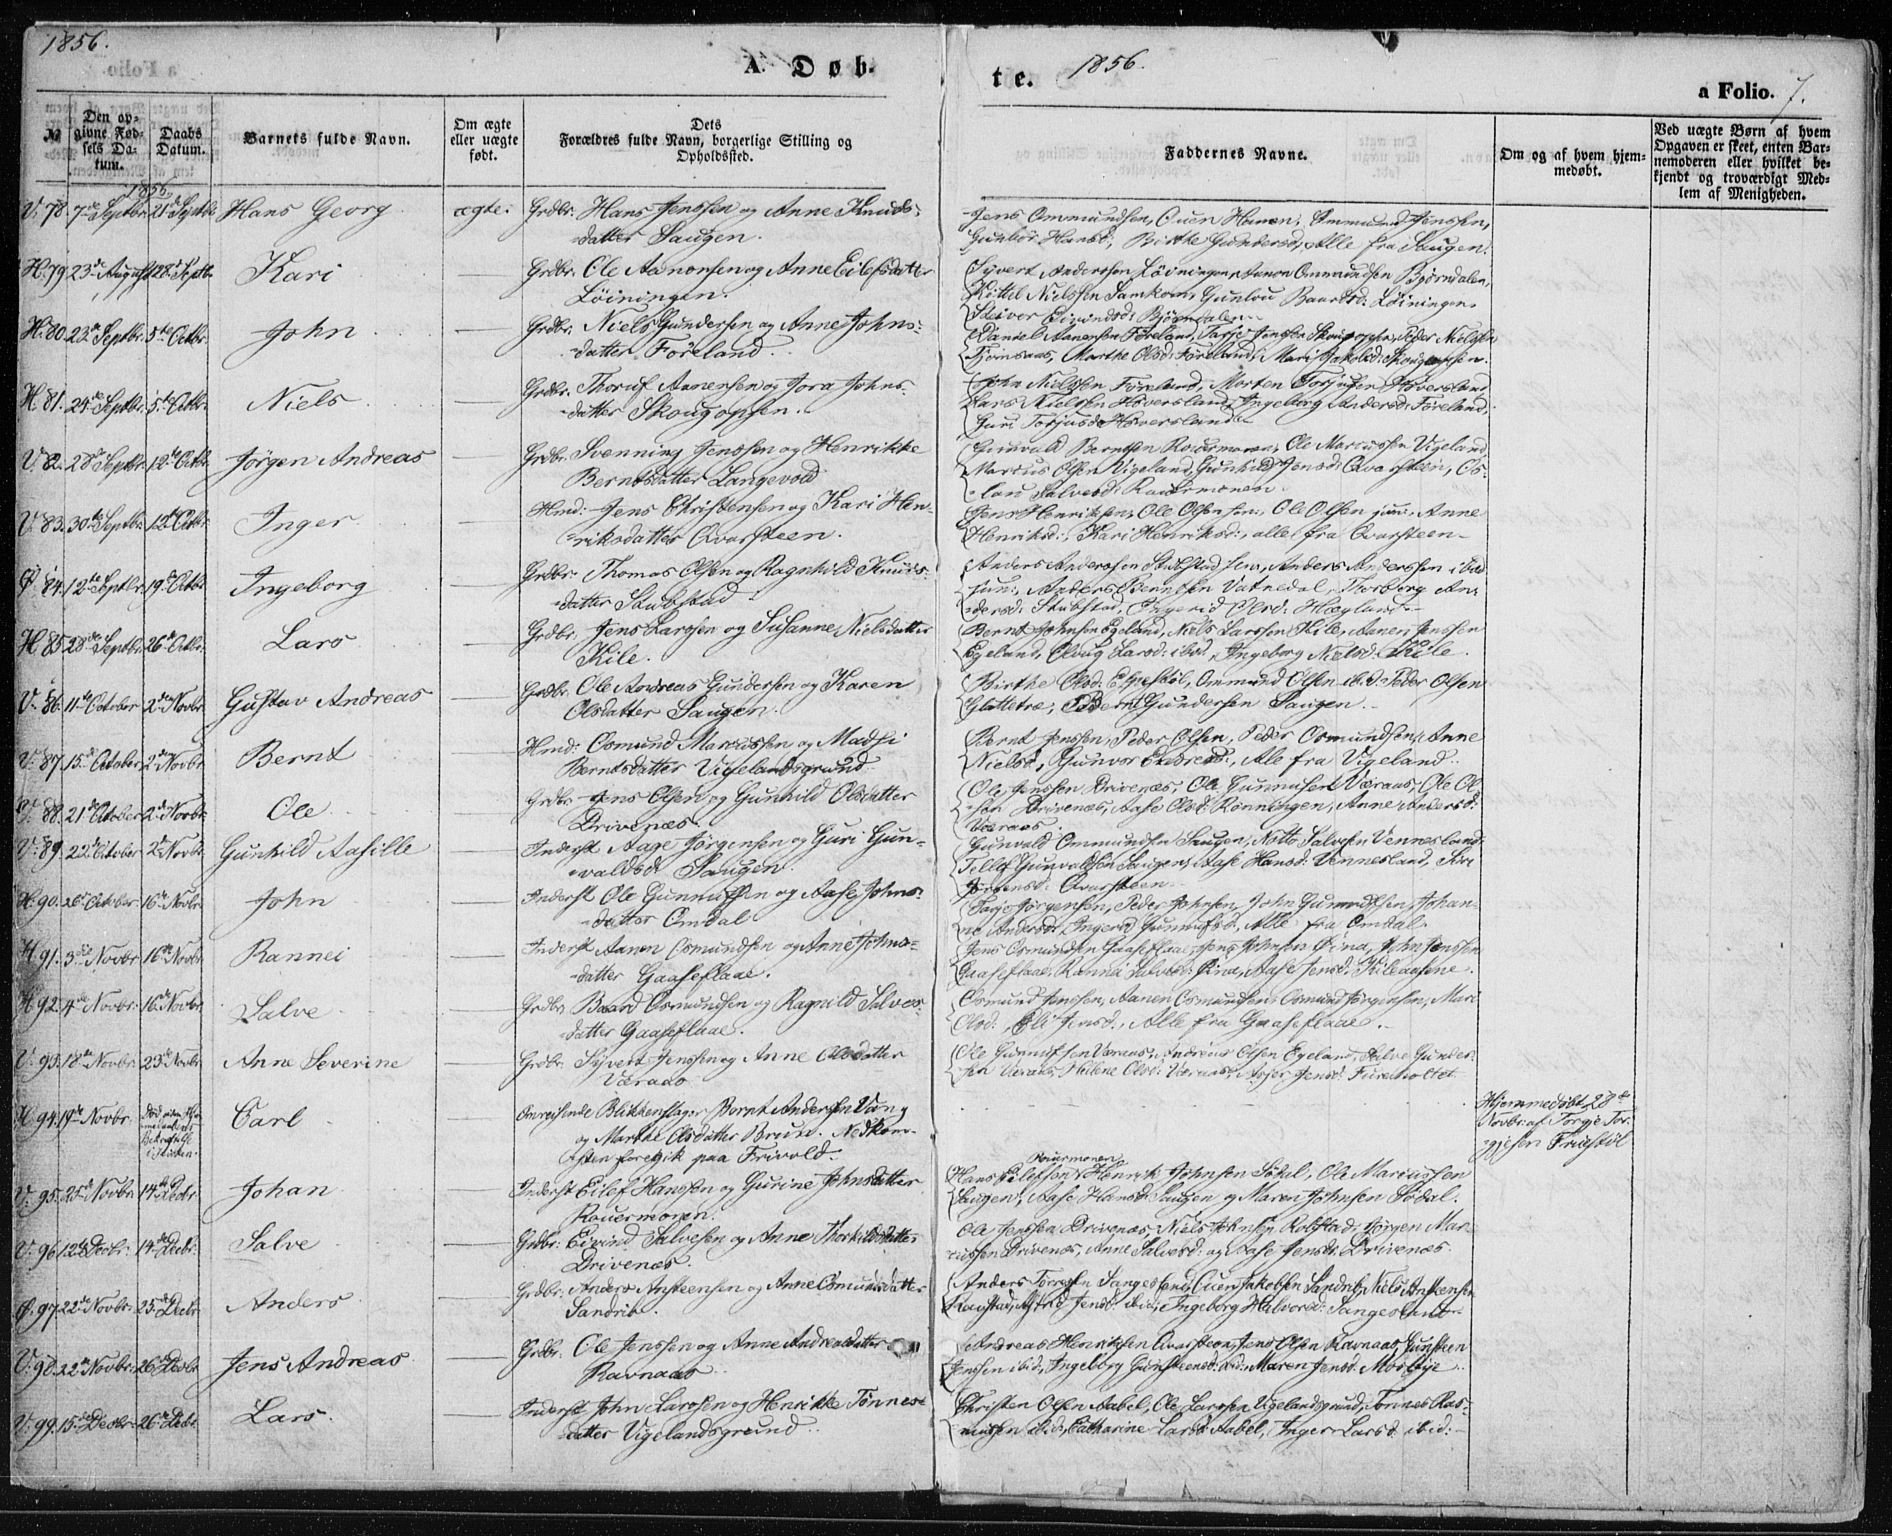 1856.
A. Døb-
te.
1856.
a Folio. 7.
№
Den op-
givne Fød-
sels Da-
tum.
Daabs
Datum.
Barnets fulde Navn.
Om ægte
eller uægte
født.
Dets
Forældres fulde Navn, borgerlige Stilling og
Opholdssted.
Faddernes Navne.
Om og af hvem hjem-
medøbt.
Ved uægte Børn af hvem
Opgaven er skeet, enten Bar-
nemoderen eller hvilket be-
kjendt og troværdigt Med-
lem af Menigheden.
1856
V. 78. 7de Septbr. 21de Septbr. Hans Georg ægte. Grdbr. Hans Jenssen og Anne Knuds-
datter Saugen.
Jens Ommundsen, Ommund Jenssen,
Gunbør Hansd:, Birthe Gundersd:, Alle fra Saugen.
H. 79. 23de August 28de Septbr. Kari — Grdbr. Ole Aanonsen og Anne Eilefsdatter
Løiningen.
Syvert Anderssen Løiningen, Aanon Ommundsen Bjørndalen,
Kittel Nielssen Samkom, Gunlou Baardsd: Løiningen
Eivindsd: Bjørndalen
H. 80. 23de Septbr. 5te Octbr. John — Grdbr. Niels Gundersen og Anne Johns-
datter Føreland.
Daniel Aanensen Føreland, Tarje Jenssen Skougopsen, Peder Nielssen
Marthe Olsd: Føreland, Mari Jakobsd: Skougopsen.
H. 81. 24de Septbr. 5te Octbr. Niels — Grdbr. Thoruf Aanensen og Jora Johns-
datter Skougopsen.
John Nielssen Føreland, Morten Torjusen Høversland
Lars Nielssen Høversland, Ingeborg Andersd: Føreland
Guri Torjusd: Høversland
V. 82. 28de Septbr. 12te Octbr. Jørgen Andreas — Grdbr. Svenning Jenssen og Henrikke
Berntsdatter Langevold
Gunvald Berntsen Rouermoren, Ole Marcussen Vigeland
Marcus Olsen Vigeland, Gunhild Jensd: Qvarsteen, Os-
lau Salvesd: Rouermonen
V. 83. 30te Septbr. 12te Octbr. Inger — Hmd: Jens Christensen og Kari Hen-
riksdatter Qvarsteen.
Jens Henriksen, Ole Olsen sen:, Ole Olsen jun:, Anne
Henriksd:, Kari Henriksd:, alle fra Qvarsteen
Ø. 84. 12te Septbr. 19de Octbr. Ingeborg — Grdbr. Thomas Olsen og Ragnhild Knuds-
datter Stubstad.
Anders Anderssen Stubstad sen:, Anders Anderssen ibid
jun:, Anders Berntsen Vatnedal, Thorborg An-
dersd: Stubstad, Ingerid Olsd: Hægland
H. 85. 28de Septbr. 26de Octbr. Lars — Grdbr. Jens Larssen og Susanne Nielsdatter
Kile.
Bernt Johnsen Egeland, Niels Larssen Kile, Aanen Jenssen
Egeland, Olaug Larsd: ibid, Ingeborg Nielsd: Kile.
V. 86. 11te October 2den Novbr. Gustav Andreas — Grdbr. Ole Andreas Gundersen og Karen
Olsdatter Saugen.
Birthe Olsd: Egesbøl, Ommund Olsen ibid: Peder Olsen
Glattetræ, Bernt Gundersen Saugen
V. 87. 15de October 2den Novbr. Bernt — Hmd: Osmund Marcussen og Madsi
Berntsdatter Vigelandsgrund
Bernt Jenssen, Peder Olsen, Peder Osmundsen, Anne
Nielsd:, Gunvor, Alle fra Vigeland.
V. 88. 21de October 2de Novbr. Ole — Grdbr. Jens Olsen og Gunhild Olsdatter
Drivenæs.
Ole Jenssen Drivenæs, Ole Gunnufsen Væraas, Ole Ol-
sen Drivenæs, Aase Olsd: Rønningen, Anne Andersd:
Væraas
V. 89. 22de October 2de Novbr. Gunhild Aasille — Inderst Aage Jørgensen og Guri Gun-
valdsd: Saugen.
Gunvald Ommundsen Saugen, Notto Salvesen Vennesland
Tellef Gunvaldsen Saugen, Aase Hansd: Vennesland, Siri
Jørgensd: Qvarsteen
H. 90. 26de October 16de Novbr. John — Inderst Ole Gunnufsen og Aase Johns-
datter Omdal
Tarje Jørgensen, Peder Johnsen, John Gunnufsen, Johan-
ne Andersd:, Ingerid Gunnufsd:, Alle fra Omdal
H. 91. 3die Novbr. 16de Novbr. Rannei — Inderst Aanen Osmundsen og Anne Johns-
datter Gaaseflaae.
Jens Osmundsen Gaaseflaae, John Jenssen
Gaaseflaae, Aase Jensd: Kileaasene.
H. 92. 4de Novbr. 16de Novbr. Salve — Grdbr. Baard Osmundsen og Ragnild Salves-
datter Gaaseflaae.
Osmund Jenssen, Aanen Osmundsen, Osmund Jørgensen, Mari
Olsd:, Eli Jensd:, Alle fra Gaaseflaae.
V. 93. 18de Novbr. 23de Novbr. Anne Severine — Grdbr. Syvert Jenssen og Anne Olsdatter
Væraas
Ole Gunnufsen Væraas, Andreas Olsen Egeland, Salve Gunder-
sen Væraas, Helene Olsd: Væraas, Asjer Jensd: Fureholtet
H. 94. 19de Novbr. Carl — Omreisende Blikkenslager Bernt Andersen Vang
og Marthe Olsdatter Brun. Nedkom-
sten foregik paa Frivold.
Hjemmedøbt 20de
Novbr. af Torge Tor-
gjesen Friestøl
V. 95. 25de Novbr. 14de Decbr. Johan — Inderst Eilef Hanssen og Gurine Johnsdatter
Rouermoren.
Rouermonen
Hans Eilefsen, Henrik Johnsen Sødal, Ole Mariussen
Saugen, Aase Hansd: Saugen og Maren Johnsen Sødal.
V. 96. 12te Decbr. 14de Decbr. Salve — Grdbr. Eivind Salvesen og Anne Thorkildsdatter
Drivenæs.
Ole Jenssen Drivenæs, Niels Johnsen Robstad, Jørgen Mar-
cussen Drivenæs, Anne Salvesd: og Aase Jensd: Drivenæs.
Ø. 97. 22de Novbr. 25de Decbr. Anders — Grdbr. Anders Ansteensen og Anne Osmundsdatter
Sandrib.
Anders Torresen Sangesland, Ouen Jakobsen Sandrib, Niels Ansteensen
Ravstad, Astrid Jensd: ibid, Ingeborg Halvorsd: Sangesland
V. 98. 22de Novbr. 26de Decbr. Jens Andreas — Grdbr. Ole Jenssen og Anne Andreasdatter
Ravnaas
Andreas Henriksen Qvarsteen, Jens Olsen Ravnaas, Gunsteen
Jenssen ibid:, Ingeborg Gunsteensd: ibid:, Maren Jensd: Mosbye
V. 99. 15de Decbr. 26de Decbr. Lars — Inderst John Larssen og Henrikke Tønnes-
datter Vigelandsgrund.
Christen Olsen Aabel, Ole Larssen Vigelandsgrund, Tønnes Ras-
mussen ibid, Cathrine Larsd: Aabel, Inger Larsd: ibid: